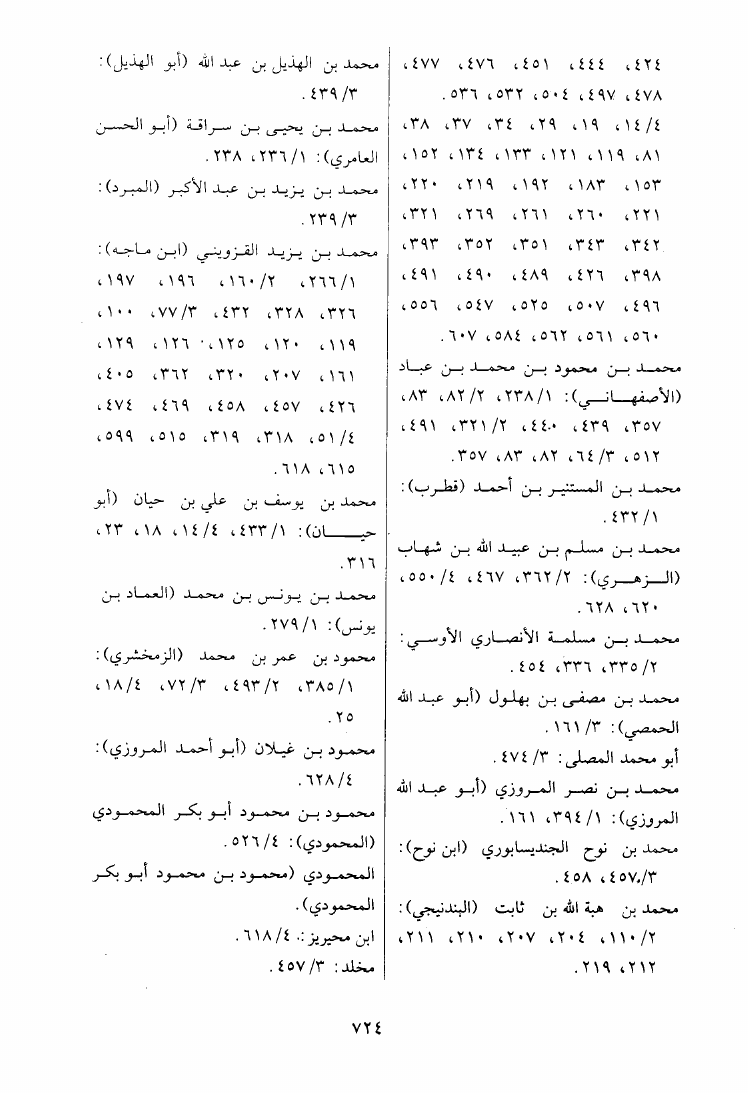 ٤٢٤، ٤٤٤، ٤٥١، ٤٧٦، ٤٧٧،
٤٧٨، ٤٩٧، ٥٠٤، ٥٣٢، ٥٣٦.
١٤/٤، ١٩، ٢٩، ٣٤، ٣٧، ٣٨،
٨١، ١١٩، ١٢١، ١٣٣، ١٣٤، ١٥٢،
١٥٣، ١٨٣، ١٩٢، ٢١٩، ٢٢٠،
٢٢١، ٢٦٠، ٢٦١، ٢٦٩، ٣٢١،
٣٤٢، ٣٤٣، ٣٥١، ٣٥٢، ٣٩٣،
٣٩٨، ٤٢٦، ٤٨٩، ٤٩٠، ٤٩١،
٤٩٦، ٥٠٧، ٥٢٥، ٥٤٧، ٥٥٦،
٥٦٠، ٥٦١، ٥٦٢، ٥٨٤، ٦٠٧.
محمد بن محمود بن محمد بن عباد
(الأصفهاني): ٢٣٨/١، ٨٢/٢، ٨٣،
٣٥٧، ٤٣٩، ٤٤٠، ٣٢١/٢، ٤٩١،
٥١٢، ٦٤/٣، ٨٢، ٨٣، ٣٥٧.
محمد بن المستنير بن أحمد (قطرب):
٤٣٢/١.
محمد بن مسلم بن عبيد الله بن شهاب
(الزهري): ٣٦٢/٢، ٤٦٧، ٥٥٠/٤،
٦٢٠، ٦٢٨.
محمد بن مسلمة الأنصاري الأوسي:
٣٣٥/٢، ٣٣٦، ٤٥٤.
محمد بن مصفى بن بهلول (أبو عبد الله
الحمصي): ١٦١/٣.
أبو محمد المصلى: ٤٧٤/٣.
محمد بن نصر المروزي (أبو عبد الله
المروزي): ٣٩٤/١، ١٦١.
محمد بن نوح الجنديسابوري (ابن نوح):
٤٥٧/٣، ٤٥٨.
محمد بن هبة الله بن ثابت (البندنيجي):
١١٠/٢، ٢٠٤، ٢٠٧، ٢١٠، ٢١١،
٢١٢، ٢١٩.
محمد بن الهذيل بن عبد الله (أبو الهذيل):
٤٣٩/٣.
محمد بن يحيى بن سراقة (أبو الحسن
العامري): ٢٣٦/١، ٢٣٨.
محمد بن يزيد بن عبد الأكبر (المبرد):
٢٣٩/٣.
محمد بن يزيد القزويني (ابن ماجه):
٢٦٦/١، ١٦٠/٢، ١٩٦، ١٩٧،
٣٢٦، ٣٢٨، ٤٣٢، ٧٧/٣، ١٠٠،
١١٩، ١٢٠، ١٢٥، ١٢٦، ١٢٩،
١٦١، ٢٠٧، ٣٢٠، ٣٦٢، ٤٠٥،
٤٢٦، ٤٥٧، ٤٥٨، ٤٦٩، ٤٧٤،
٥١/٤، ٣١٨، ٣١٩، ٥١٥، ٥٩٩،
٦١٥، ٦١٨.
محمد بن يوسف بن علي بن حيان (أبو
حيان): ٤٣٣/١، ١٤/٤، ١٨، ٢٣،
٣١٦.
محمد بن يونس بن محمد (العماد بن
يونس): ٢٧٩/١.
محمود بن عمر بن محمد (الزمخشري):
٣٨٥/١، ٤٩٣/٢، ٧٢/٣، ١٨/٤،
٢٥.
محمود بن غيلان (أبو أحمد المروزي):
٦٢٨/٤.
محمود بن محمود أبو بكر المحمودي
(المحمودي): ٥٢٦/٤.
المحمودي (محمود بن محمود أبو بكر
المحمودي).
ابن محيريز: ٦١٨/٤.
مخلد: ٤٥٧/٣.
٧٢٤